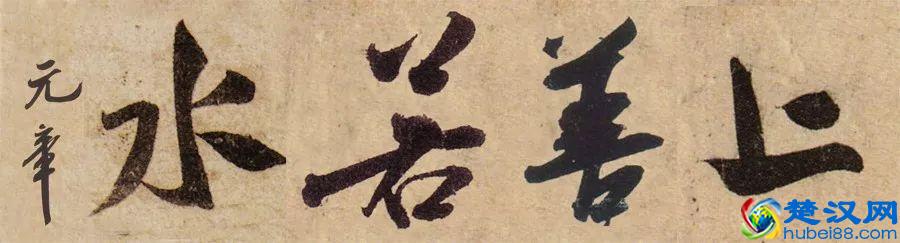 上善若水
元章
楚汉网
hubei88.com